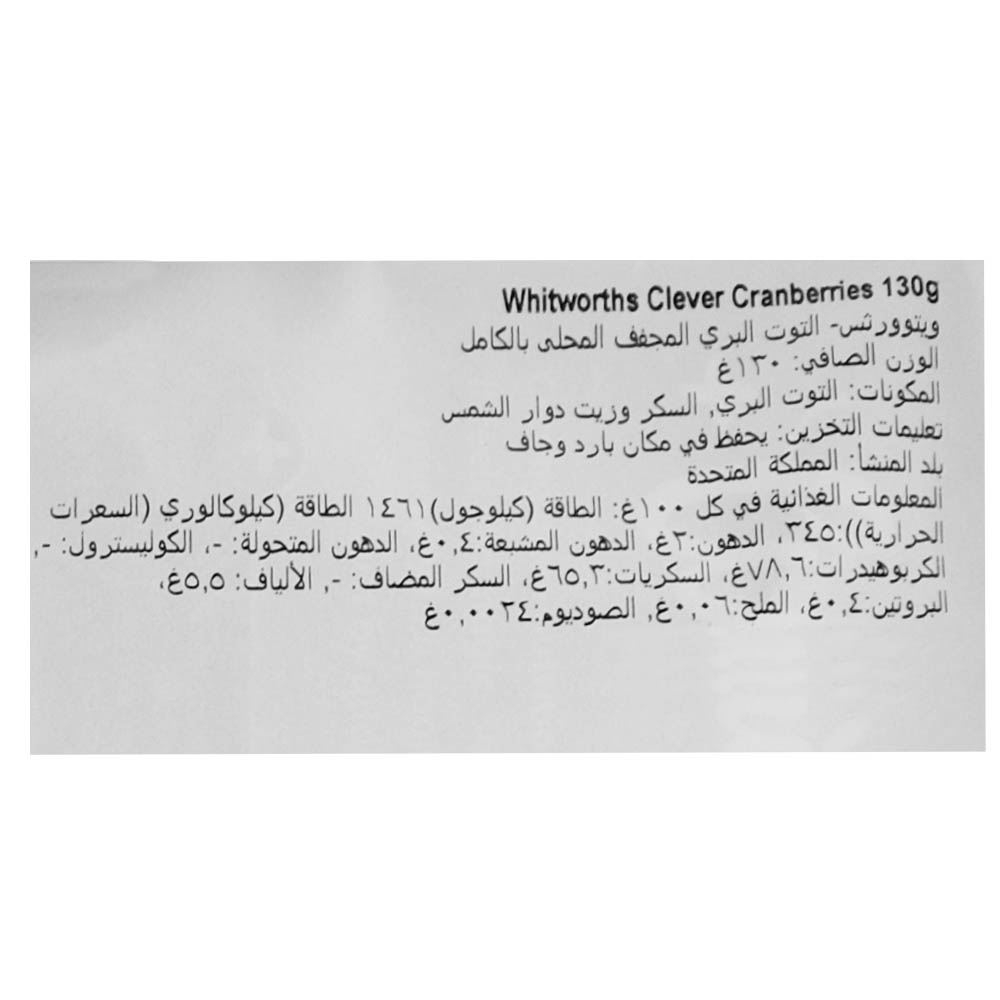 Whitworths Clever Cranberries 130g
ويتوورثس- التوت البري المجفف المحلى بالكامل
الوزن الصافي: ١٣٠غ
المكونات: التوت البري, السكر وزيت دوار الشمس
تعليمات التخزين: يحفظ في مكان بارد وجاف
بلد المنشأ: المملكة المتحدة
المعلومات الغذائية في كل ١٠٠غ: الطاقة (كيلوجول)١٤٦١ الطاقة (كيلوكالوري (السعرات
الحرارية)):٣٤٥، الدهون:٢غ، الدهون المشبعة:٠,٤غ، الدهون المتحولة: -، الكوليسترول: -,
الكربوهيدرات:٧٨,٦غ، السكريات:٦٥,٣غ، السكر المضاف: -, الألياف: ٥,٥غ،
البروتين:٠,٤غ، الملح:٠,٠٦غ, الصوديوم:٠,٠٠٢٤غ